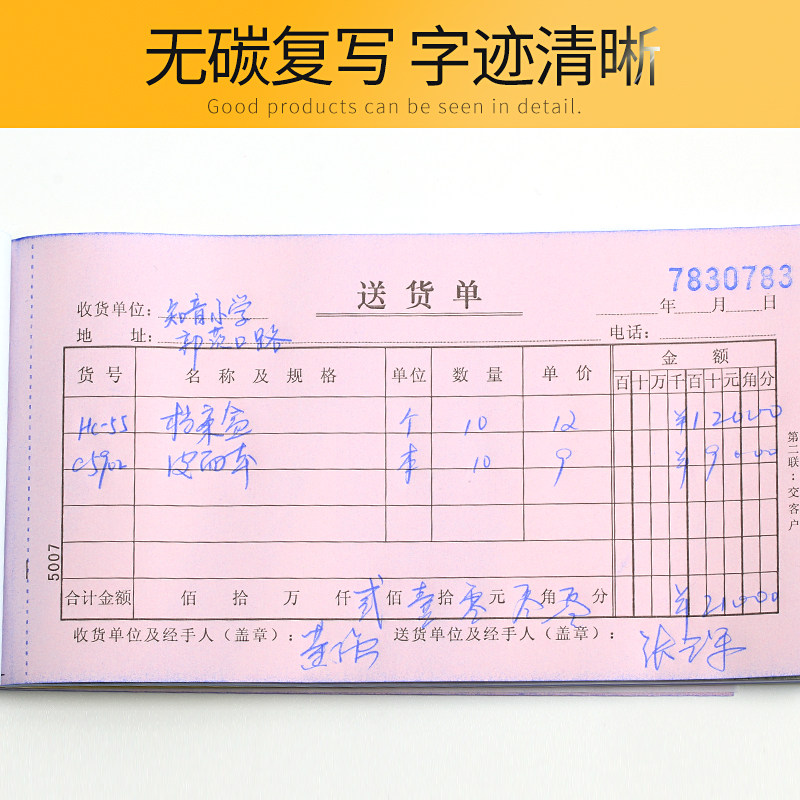 无碳复写 字迹清晰
Good products can be seen in detail.
7830783
送货单
收货单位: 知音小学 年 月 日
地 址: 郭茨口路 电话:
货号 名称及规格 单位 数量 单价 金额
百 十 万 千 百 十 元 角 分
HC-55 档案盒 个 10 12 ¥12000
C5902 皮面本 本 10 9 ¥9000
合计金额 佰 拾 万 仟 贰 佰 壹 拾 零 元 零 角 零 分 ¥21000
收货单位及经手人（盖章）: 送货单位及经手人（盖章）:
5007
第二联:交客户